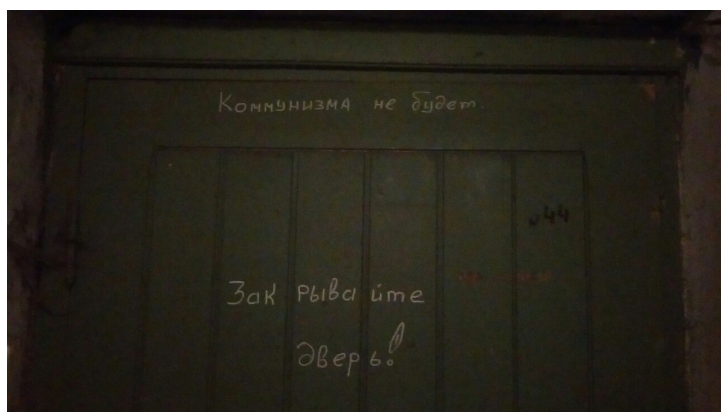 Коммунизма не будет
44
Закрывайте
дверь!